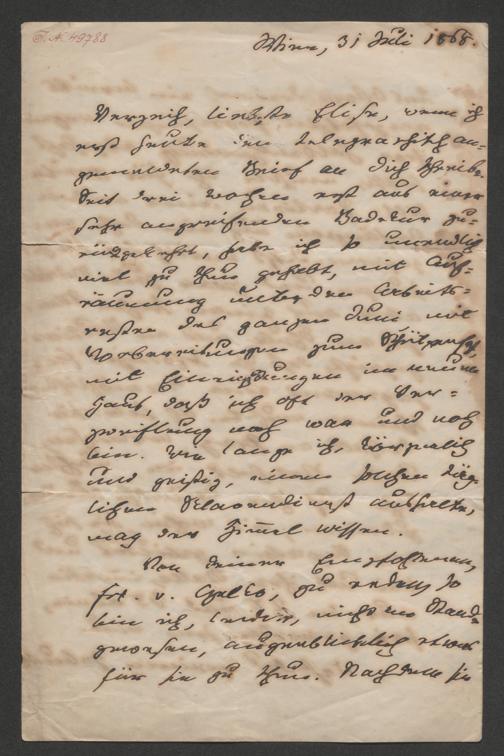 I. N. 49788
Wien, 31 Juli 1868.
Verzeih, liebste Elise, wenn ich
erst heute den telegraphisch an-
gemeldeten Brief an Dich schreibe.
Seit drei Wochen erst aus einer
sehr angreifenden Badekur zu-
rückgekehrt, habe ich so unendlich
viel zu thun gehabt, mit Auf-
räumung unter den Arbeits-
resten des ganzen Juni, mit
Vorbereitungen zum Schützenfest,
mit Einrichtungen im neuen
Haus, daß ich oft der Ver-
zweiflung nah war und noch
bin. Wie lange ich, körperlich
und geistig, einen solchen täg-
lichen Sklavendienst aushalte,
mag der Himmel wissen.
Von deiner Empfohlenen,
Frl. v. zu reden, so
bin ich, leider, nicht im Stand
gewesen, augenblicklich etwas
für sie zu thun. Nachdem sie